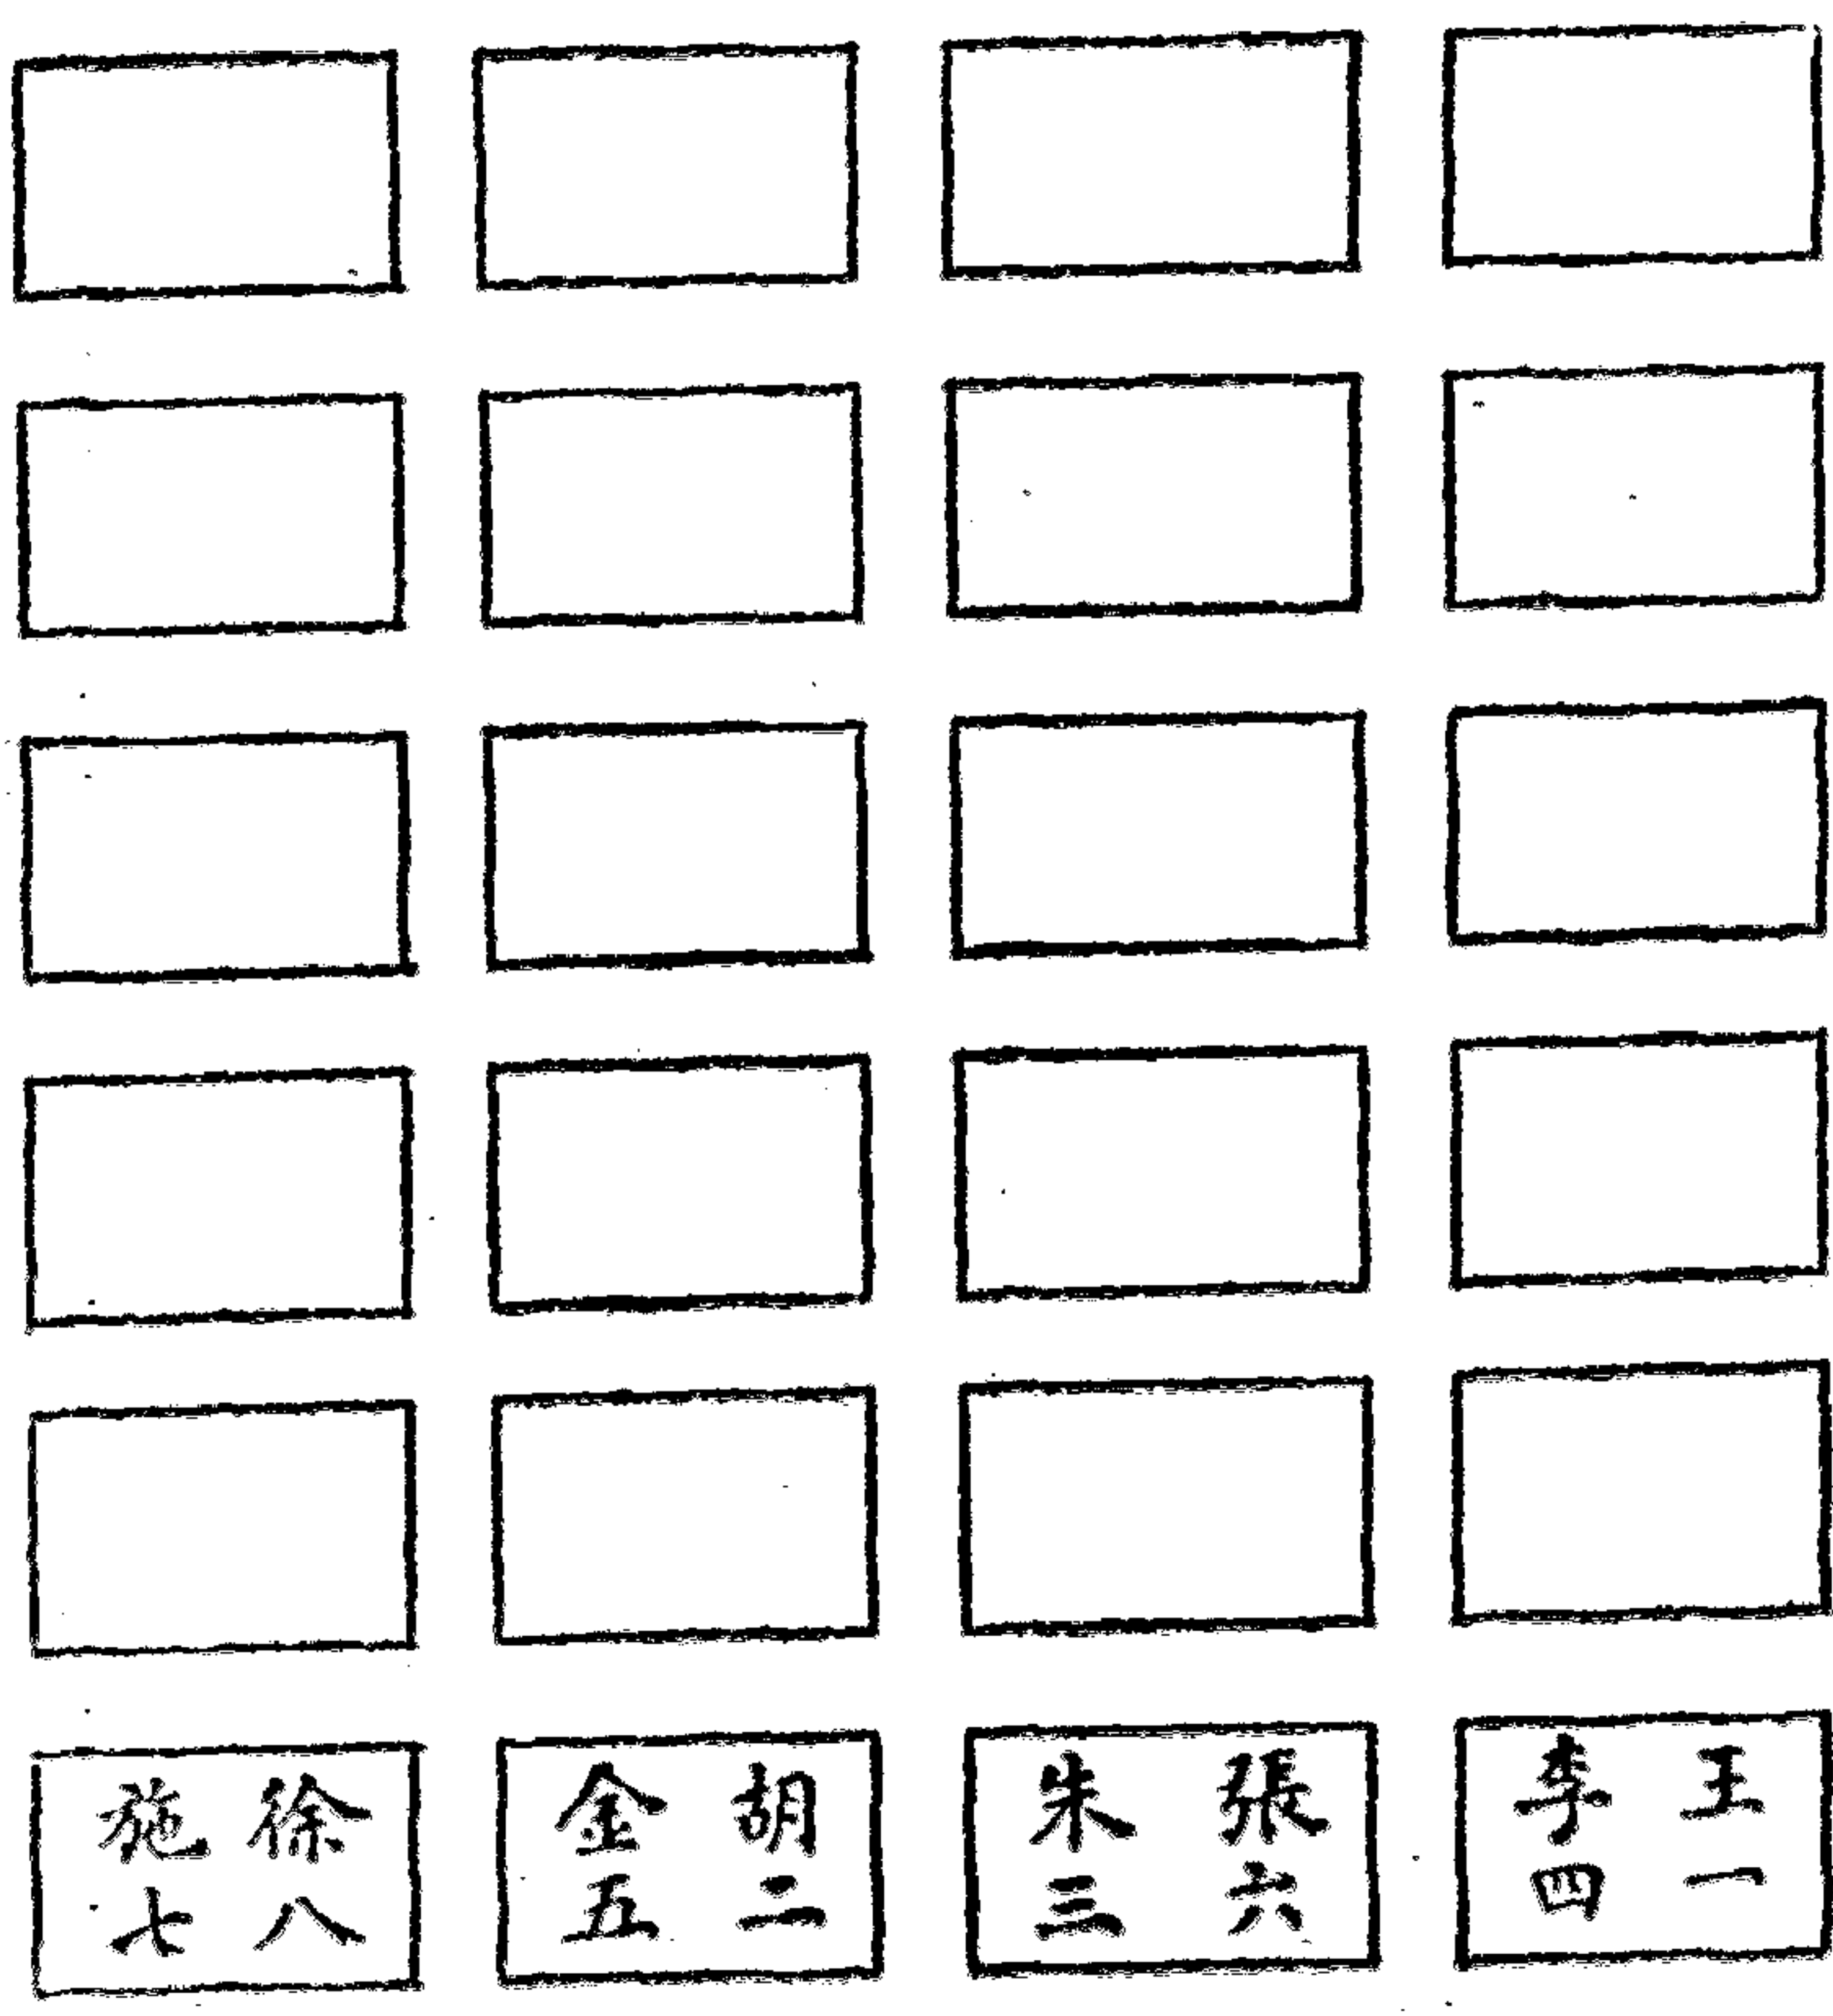 王一
李四
張六
朱三
胡二
金五
徐八
施七